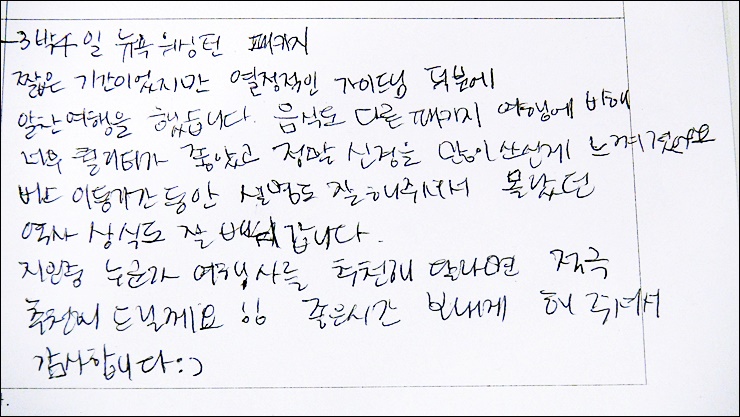 -3박4일 뉴욕 워싱턴 패키지
짧은 기간이었지만 열정적인 가이드님 덕분에
알찬여행을 했습니다. 음식도 다른 패키지 여행에 비해
너무 퀄리티가 좋았고 정말 신경을 많이 쓰신게 느껴졌어요
버스 이동기간 동안 설명도 잘해주셔서 몰랐던
역사 상식도 잘 배워갑니다.
지인중 누군가 여행사를 추천해 달라면 적극
추천해 드릴게요 !! 좋은시간 보내게 해 주셔서
감사합니다 :)